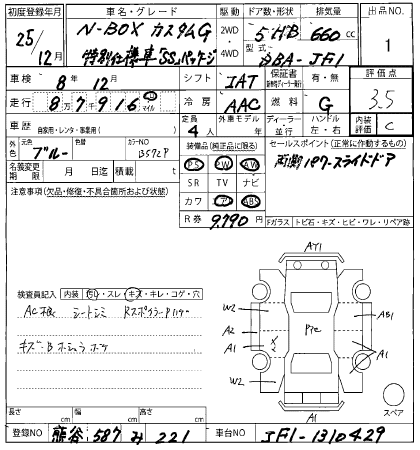 初度登録年月 車名・グレード 駆動 ドア数・形状 排気量 出品NO.
25/12月 N-BOX カスタムG 2WD 4WD 5HB 660cc 1
特別仕様車"SS"パッケージ 型式 DBA-JF1
車検 8年12月 シフト IAT 保証書 有・無 評価点 3.5
走行 87916 マイル 冷房 AAC 燃料 G
車歴 自家用・レンタ・事業用( ) 定員 4人 外車モデル 年 ディーラー 並行 ハンドル 左・右 内装評価 C
外色 元色 ブルー 色替 カラーNO B572P
装備品(純正品に限る) セールスポイント(正常に作動するもの)
PS PW AW 両側パワースライドドア
名義変更期限 月 日迄 積載 t SR TV ナビ
注意事項(欠品・修復・不具合箇所および状態) カワ ABS
R券 9,790円
Fガラス トビ石・キズ・ヒビ・ワレ・リペア跡
検査員記入 内装 スレ・キズ・キレ・コゲ・穴
AC シートシミ Rスポイラー
キズ・B
AT1
W2
A2
A1
W2
Pic
AB1
A1
A1
スペア
長さ cm 幅 cm 高さ cm
登録NO 熊谷 587 み 221 車台NO JF1-1310429